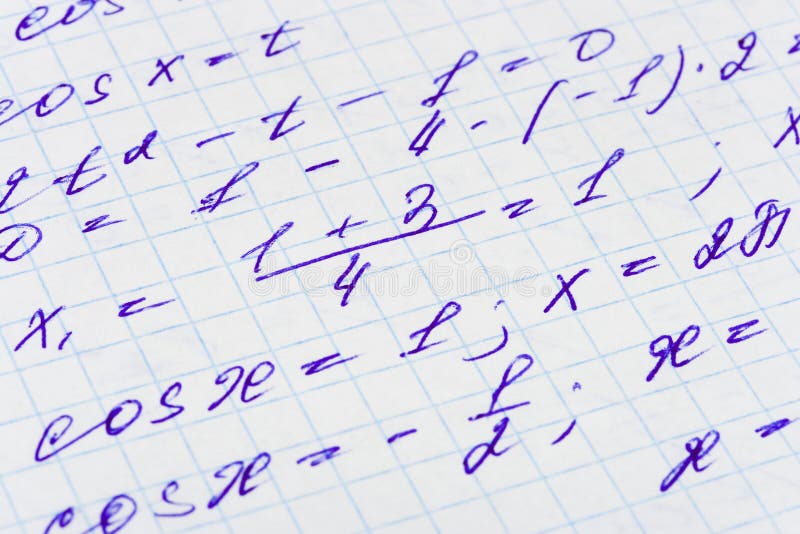 cos
cos x = t
2t² - t - 1 = 0
D = 1 - 4 · (-1) · 2 =
x₁ = (1 + 3)/4 = 1 ; x
cos x = 1 ; x = 2π
cos x = - 1/2 ; x =
x =